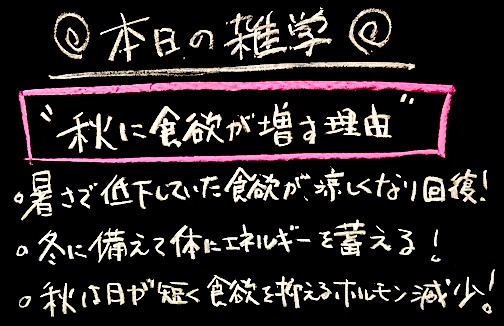 本日の雑学
"秋に食欲が増す理由"
○暑さで低下していた食欲が、涼しくなり回復!
○冬に備えて体にエネルギーを蓄える!
○秋は日が短く食欲を抑えるホルモン減少!